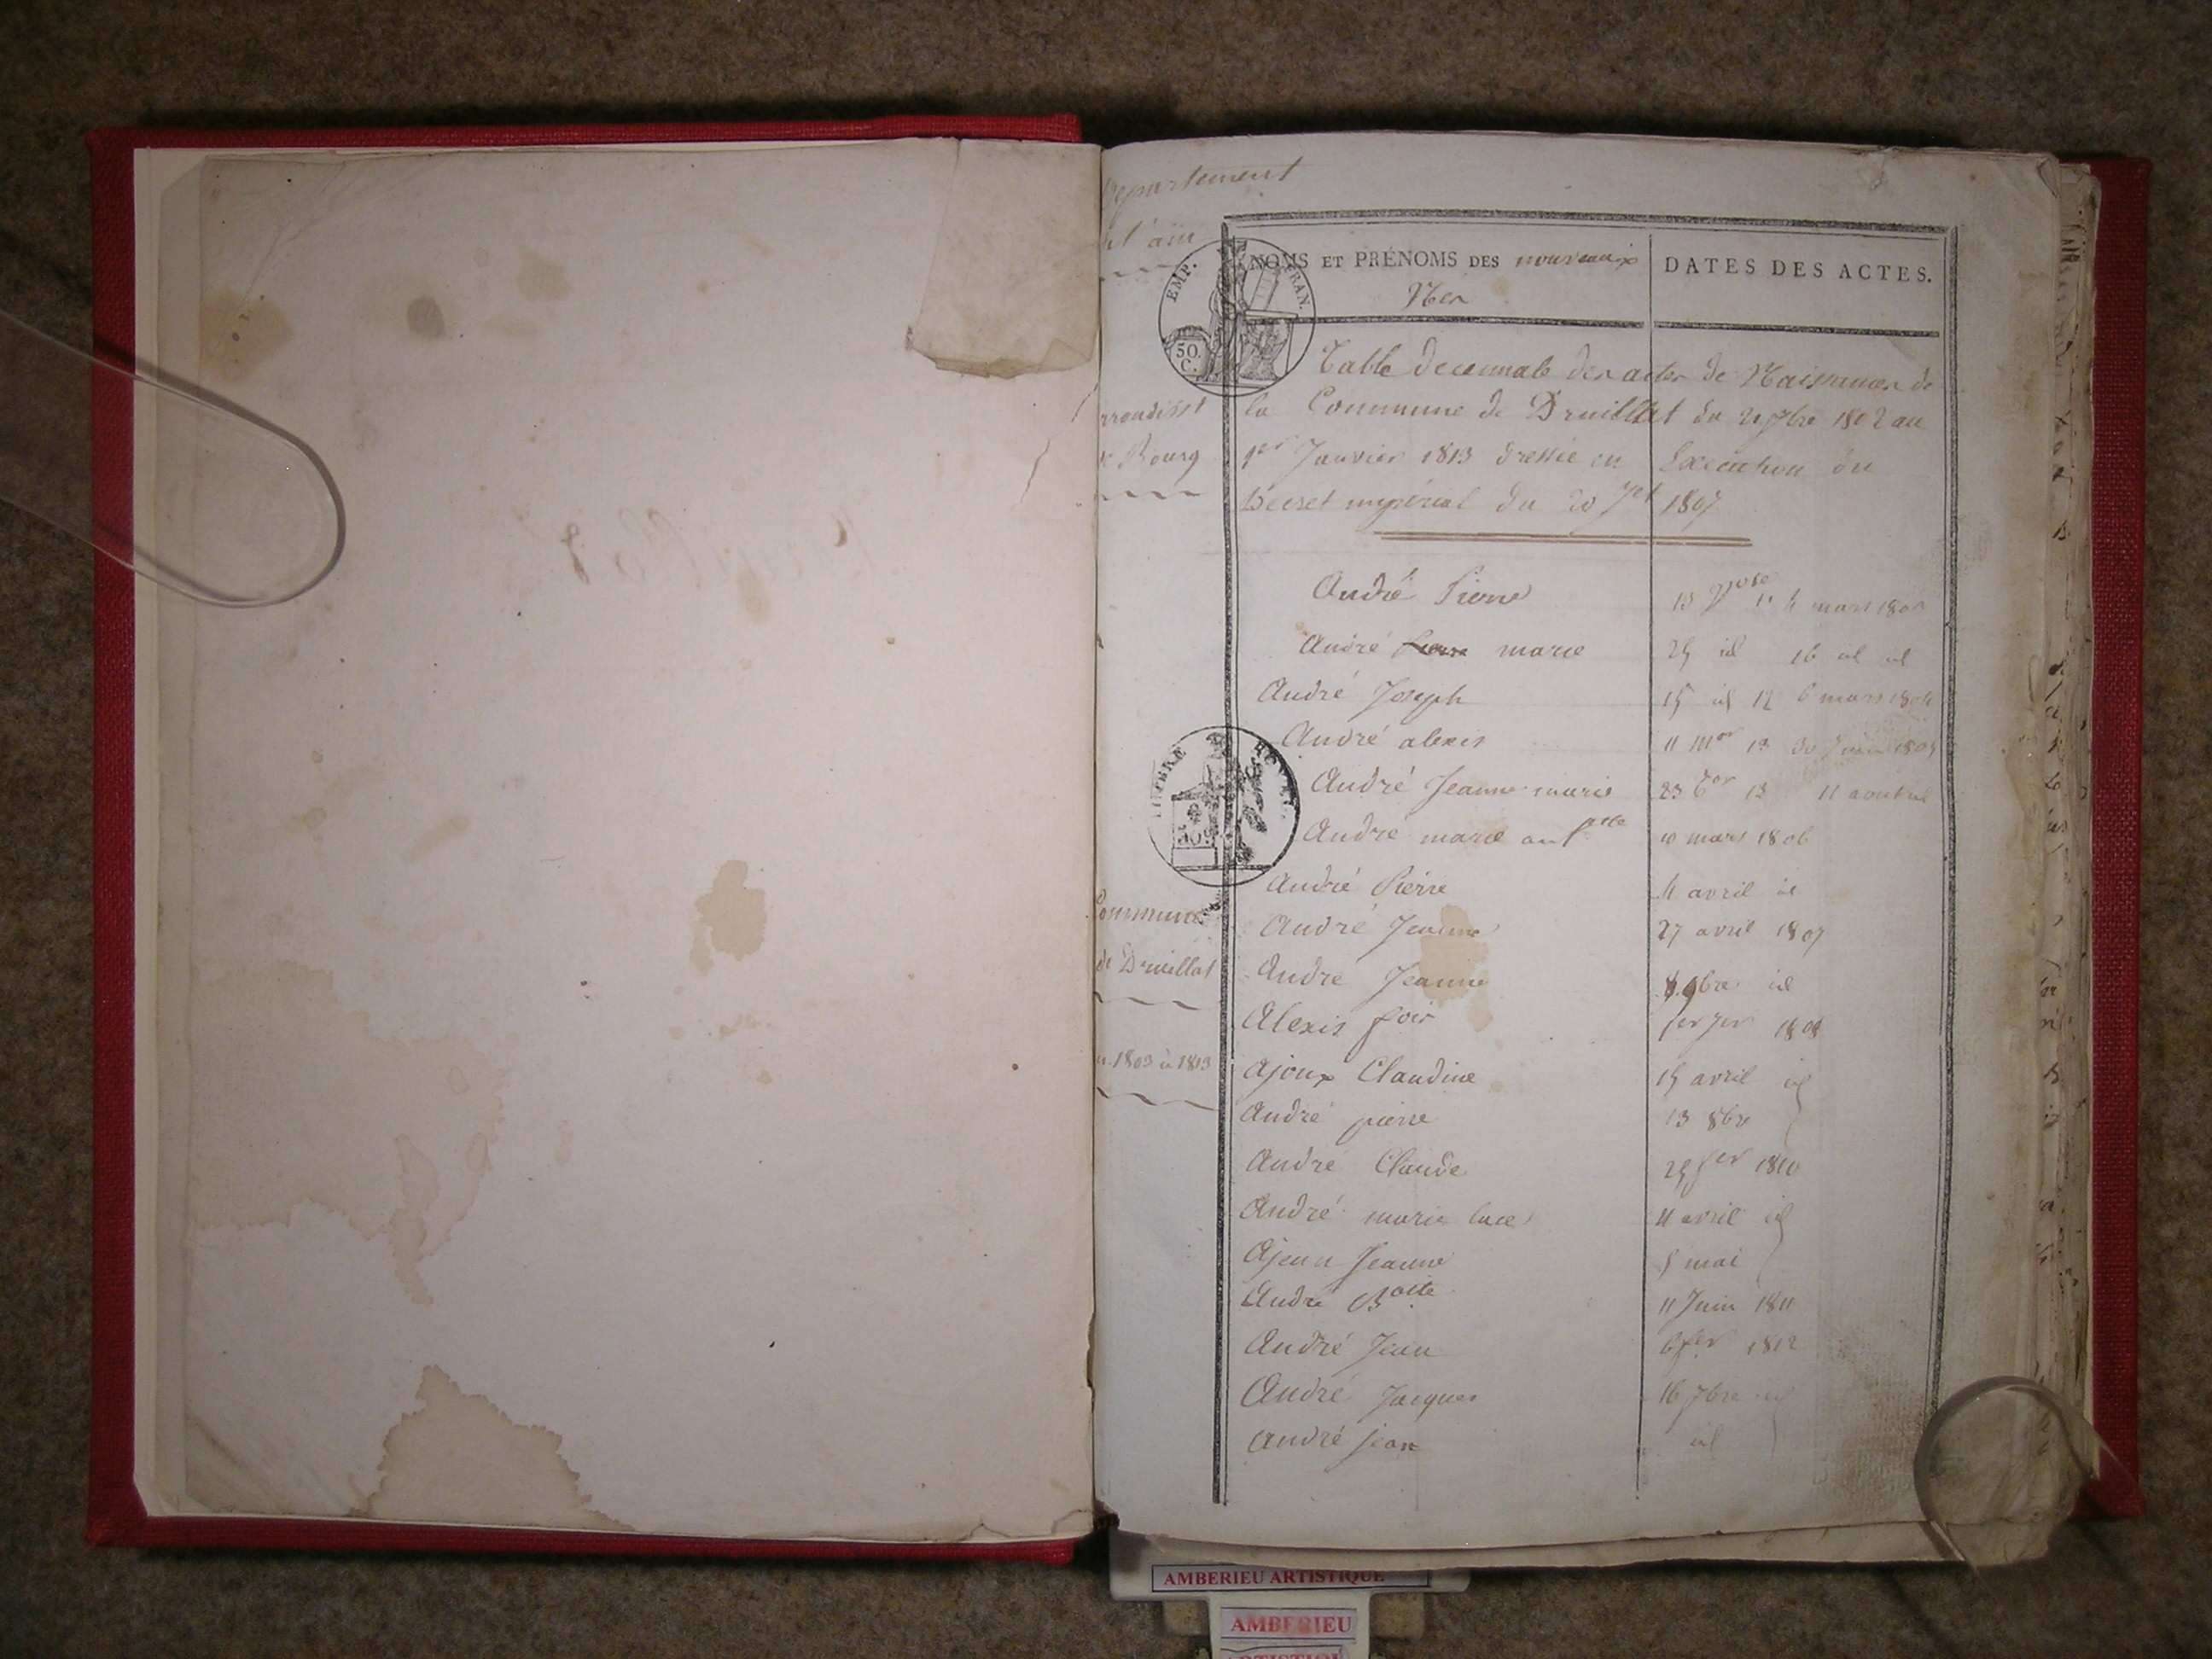 Departement
de l'ain
NOMS ET PRÉNOMS DES nouveaux
Nés
DATES DES ACTES.
EMP. FRAN.
50. C.
Table decennale des actes de Naissances de
la Commune de Druillat du 21 7bre 1802 au
1er Janvier 1813 dressée en Execution du
Decret impérial du 20 Jet 1807
arrondisst
de Bourg
André Pierre 13 11 4 mars 1803
André Pierre marie 25 id 16 id id
André Joseph 15 id 12 6 mars 1804
André alexis 11 mor 13 30 Juin 1805
André Jeanne marie 23 13 11 aout id
TIMBRE ROYAL
50
André marie 10 mars 1806
André Pierre 4 avril id
Commune
André Jeanne 27 avril 1807
de Druillat
André Jeanne 9bre id
Alexis 1er Jer 1808
1803 à 1813
Ajoux Claudine 15 avril id
André pierre 13 8bre
André Claude 25 1810
André marie luce 4 avril id
Ajoux Jeanne 5 mai
André Btte 11 Juin 1811
André Jean 6 1812
André Jacques 16 7bre id
André jean id
AMBERIEU ARTISTIQUE
AMBERIEU
ARTISTIQUE